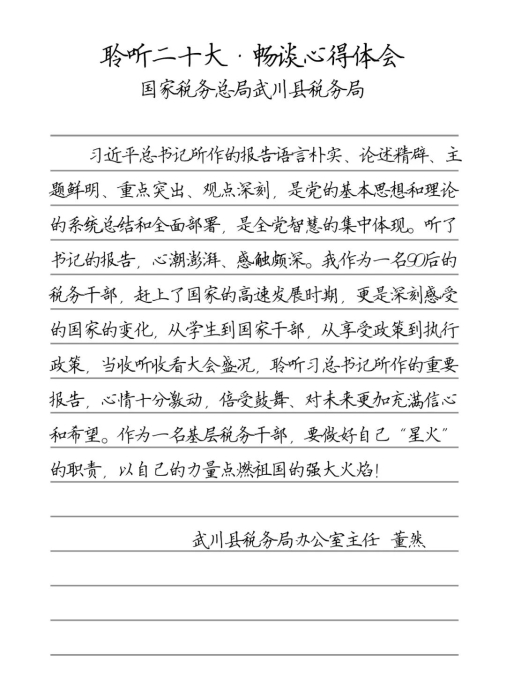 聆听二十大·畅谈心得体会
国家税务总局武川县税务局
习近平总书记所作的报告语言朴实、论述精辟、主
题鲜明、重点突出、观点深刻，是党的基本思想和理论
的系统总结和全面部署，是全党智慧的集中体现。听了
书记的报告，心潮澎湃、感触颇深。我作为一名90后的
税务干部，赶上了国家的高速发展时期，更是深刻感受
的国家的变化，从学生到国家干部，从享受政策到执行
政策，当收听收看大会盛况，聆听习总书记所作的重要
报告，心情十分激动，倍受鼓舞、对未来更加充满信心
和希望。作为一名基层税务干部，要做好自己“星火”
的职责，以自己的力量点燃祖国的强大火焰！
武川县税务局办公室主任 董然